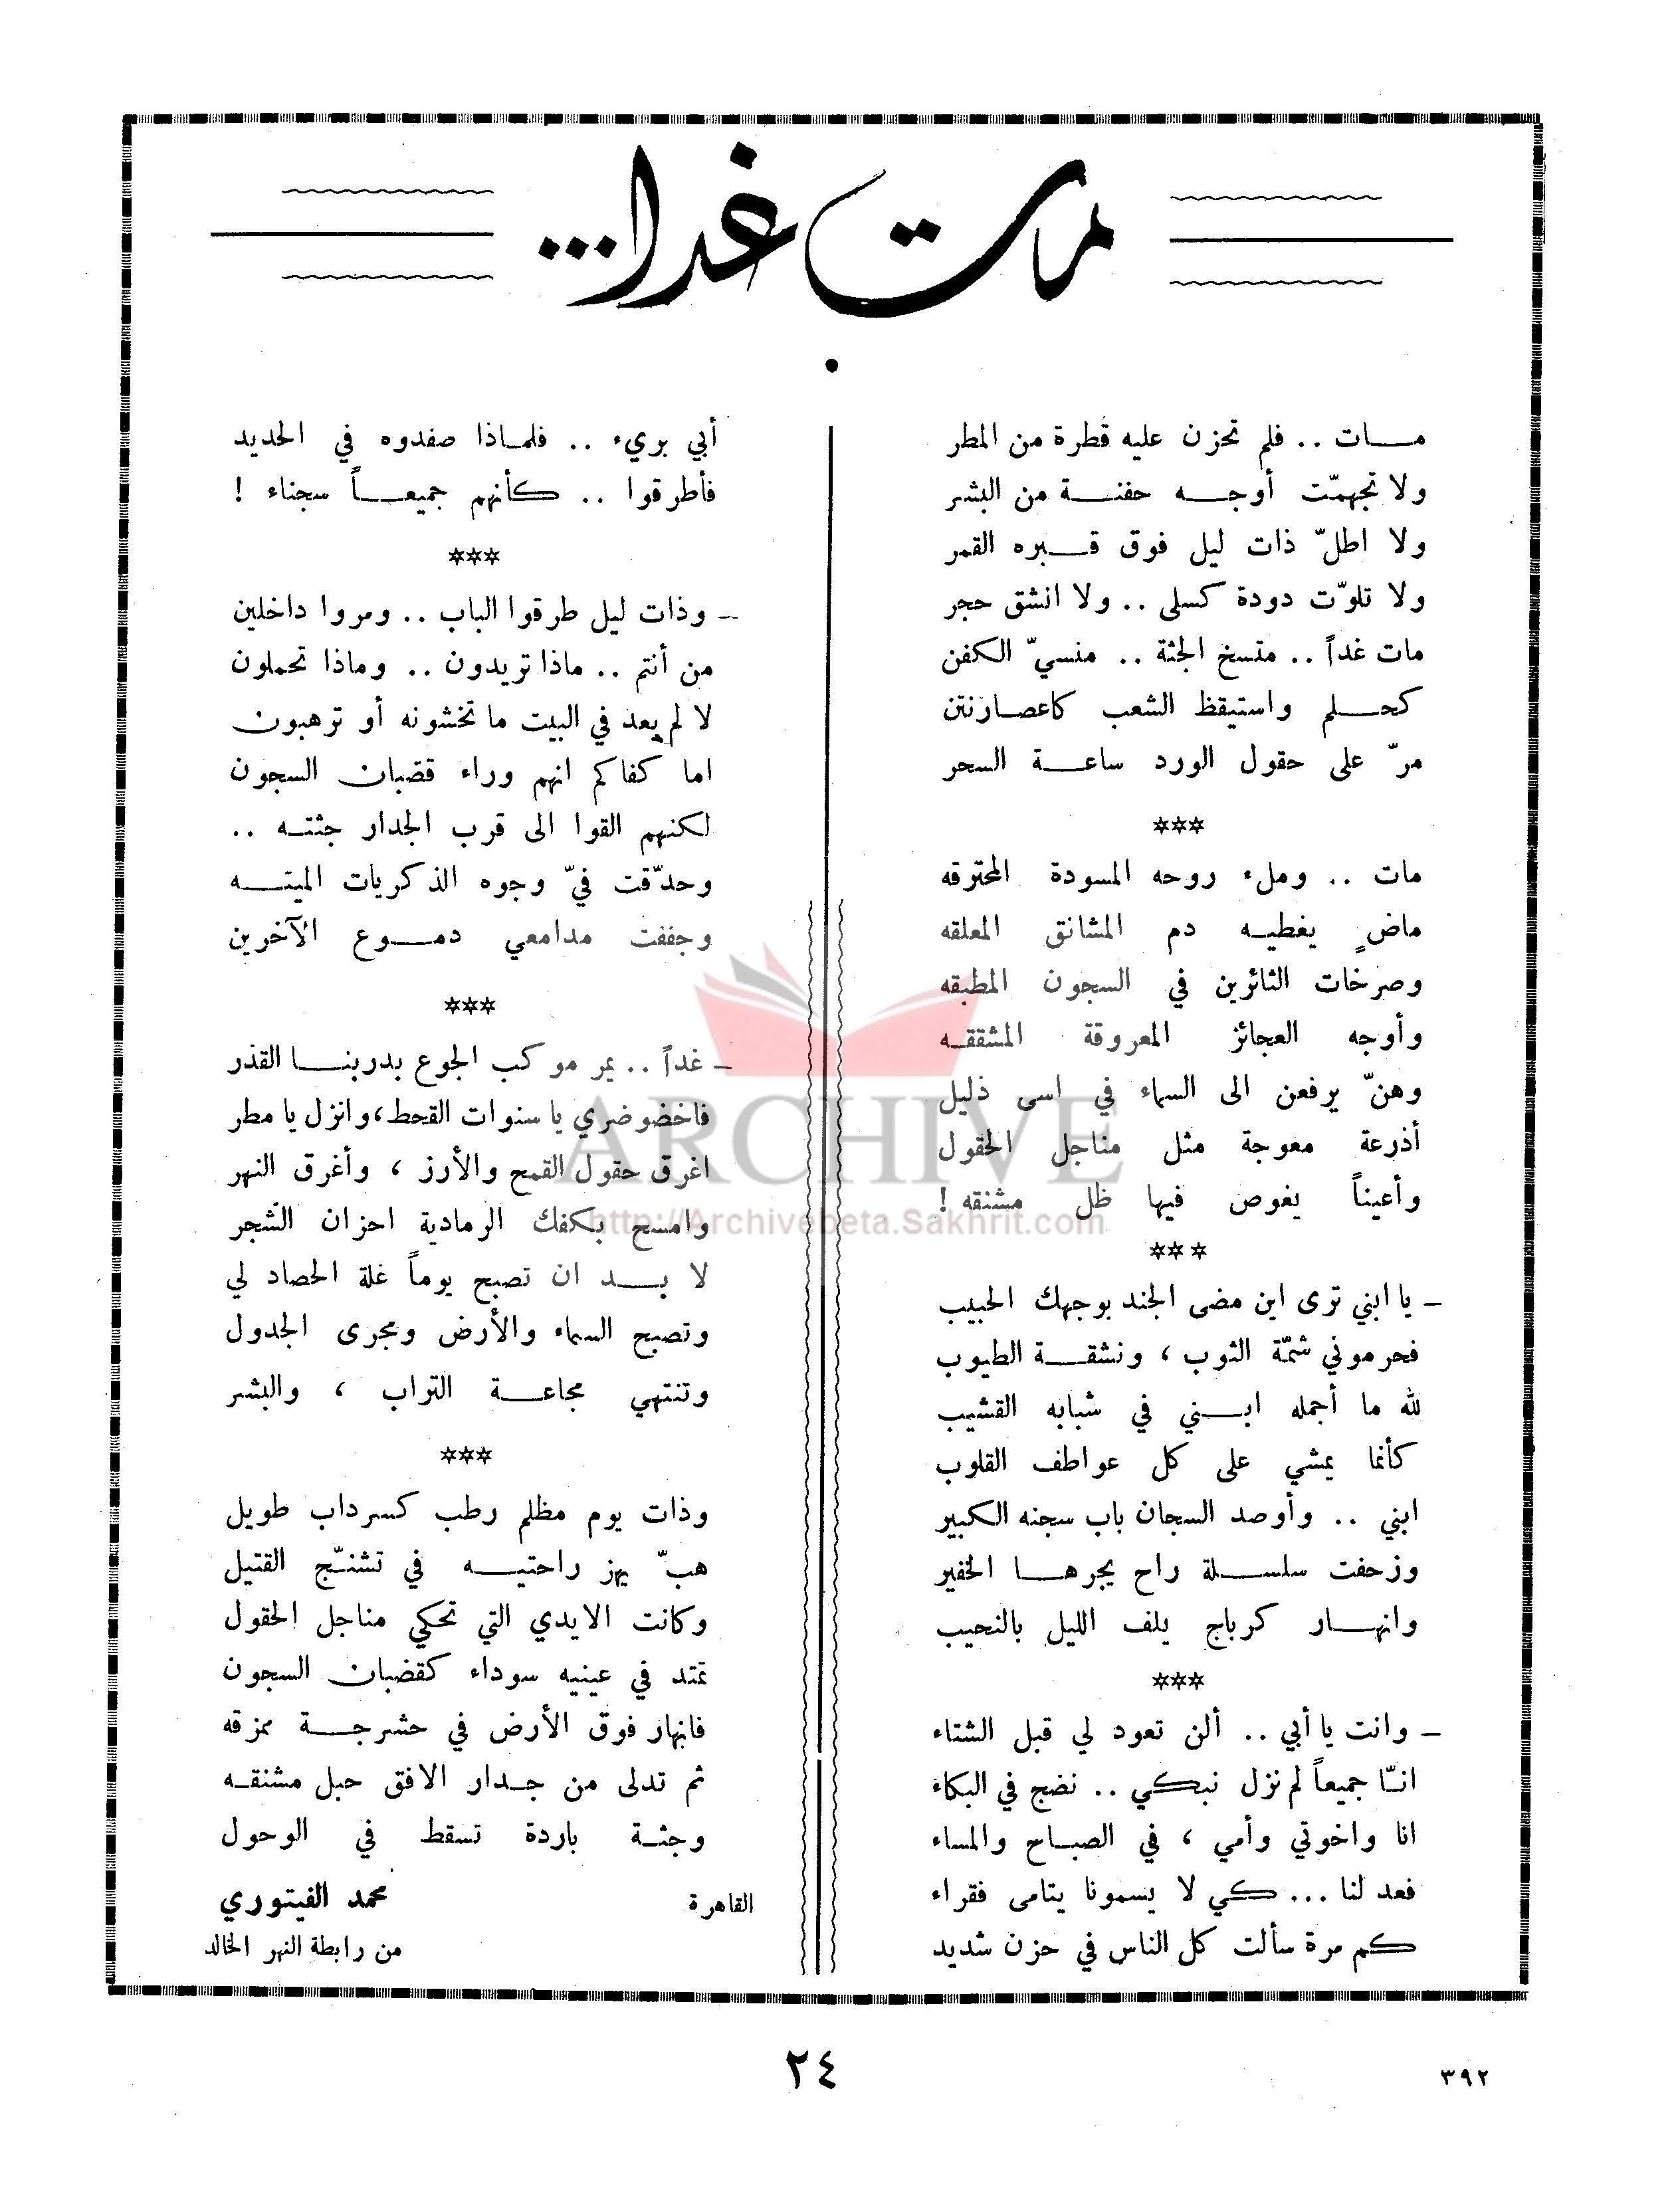 مات غدا...
مات .. فلم تحزن عليه قطرة من المطر
ولا تجهمّت أوجه حفنة من البشر
ولا اطلّ ذات ليل فوق قبره القمر
ولا تلوّت دودة كسلى .. ولا انشق حجر
مات غداً .. متسخ الجثة .. منسيّ الكفن
كحلم واستيقظ الشعب كاعصار نتن
مرّ على حقول الورد ساعة السحر
***
مات .. وملء روحه المسودة المحترقه
ماضٍ يغطيه دم المشانق المعلقه
وصرخات الثائرين في السجون المطبقه
وأوجه العجائز المعروقة المشققه
وهنّ يرفعن الى السماء في اسى ذليل
أذرعة معوجة مثل مناجل الحقول
وأعيناً يغوص فيها ظل مشنقه !
***
ـ يا ابني ترى اين مضى الجند بوجهك الحبيب
فحرموني شمّة الثوب ، ونشقة الطيوب
لله ما أجمله ابني في شبابه القشيب
كأنما يمشي على كل عواطف القلوب
ابني .. وأوصد السجان باب سجنه الكبير
وزحفت سلسلة راح يجرها الخفير
وانهار كرباج يلف الليل بالنحيب
***
ـ وانت يا أبي .. ألن تعود لي قبل الشتاء
انّا جميعاً لم نزل نبكي .. نضج في البكاء
انا واخوتي وأمي ، في الصباح والمساء
فعد لنا ... كي لا يسمونا يتامى فقراء
كم مرة سألت كل الناس في حزن شديد
أبي بريء .. فلماذا صفدوه في الحديد
فأطرقوا .. كأنهم جميعاً سجناء !
***
ـ وذات ليل طرقوا الباب .. ومروا داخلين
من أنتم .. ماذا تريدون .. وماذا تحملون
لا لم يعد في البيت ما تخشونه أو ترهبون
اما كفاكم انهم وراء قضبان السجون
لكنهم القوا الى قرب الجدار جثته ..
وحدّقت فيّ وجوه الذكريات الميته
وجففت مدامعي دموع الآخرين
***
ـ غداً .. يمر موكب الجوع بدربنا القذر
فاخضوضري يا سنوات القحط، وانزل يا مطر
اغرق حقول القمح والأرز ، وأغرق النهر
وامسح بكفك الرمادية احزان الشجر
لا بد ان تصبح يوماً غلة الحصاد لي
وتصبح السماء والأرض ومجرى الجدول
وتنتهي مجاعة التراب ، والبشر
***
وذات يوم مظلم رطب كسرداب طويل
هبّ يهز راحتيه في تشنّج القتيل
وكانت الايدي التي تحكي مناجل الحقول
تمتد في عينيه سوداء كقضبان السجون
فانهار فوق الأرض في حشرجة ممزقه
ثم تدلى من جدار الافق حبل مشنقه
وجثة باردة تسقط في الوحول
القاهرة
محمد الفيتوري
من رابطة النهر الخالد
ARCHIVE
http://Archivebeta.Sakhrit.com
٢٤
٣٩٢